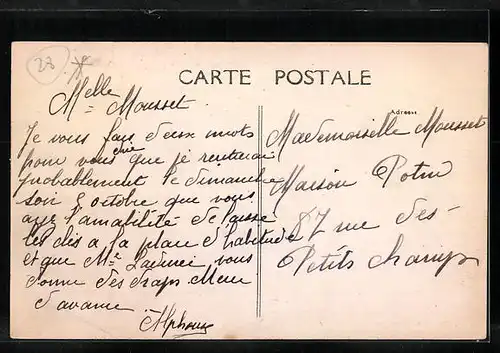 28
CARTE POSTALE
Melle Mousset
Je vous fais deux mots
pour vous dire que je rentrerai
probablement le dimanche
soir 8 octobre que vous
ayez l'amabilité de laissé
les clés a la place d'habitude
et que Mr vous
donne des draps Merci
d'avance
Alphonse
Adresse
Mademoiselle Mousset
Maison Potin
rue des
Petits champs